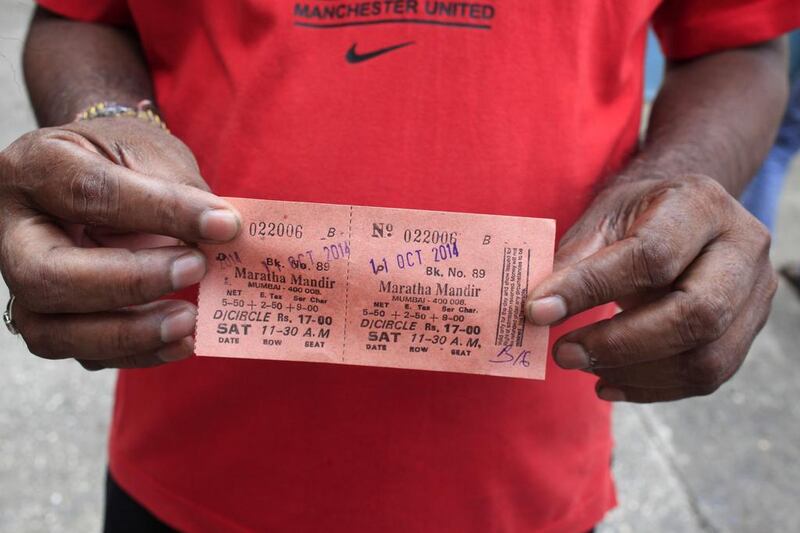 MANCHESTER UNITED
022006 B
Bk. No. 89
OCT 2014
Maratha Mandir
MUMBAI - 400 008.
NET E. Tax Ser Char
5-50 + 2-50 + 9-00
D/CIRCLE Rs. 17-00
SAT 11-30 A.M
DATE ROW SEAT
Nº 022006 B
OCT 2014
Bk. No. 89
Maratha Mandir
MUMBAI - 400 008.
NET E. Tax Ser Char
5-50 + 2-50 + 9-00
D/CIRCLE Rs. 17-00
SAT 11-30 A.M
DATE ROW SEAT